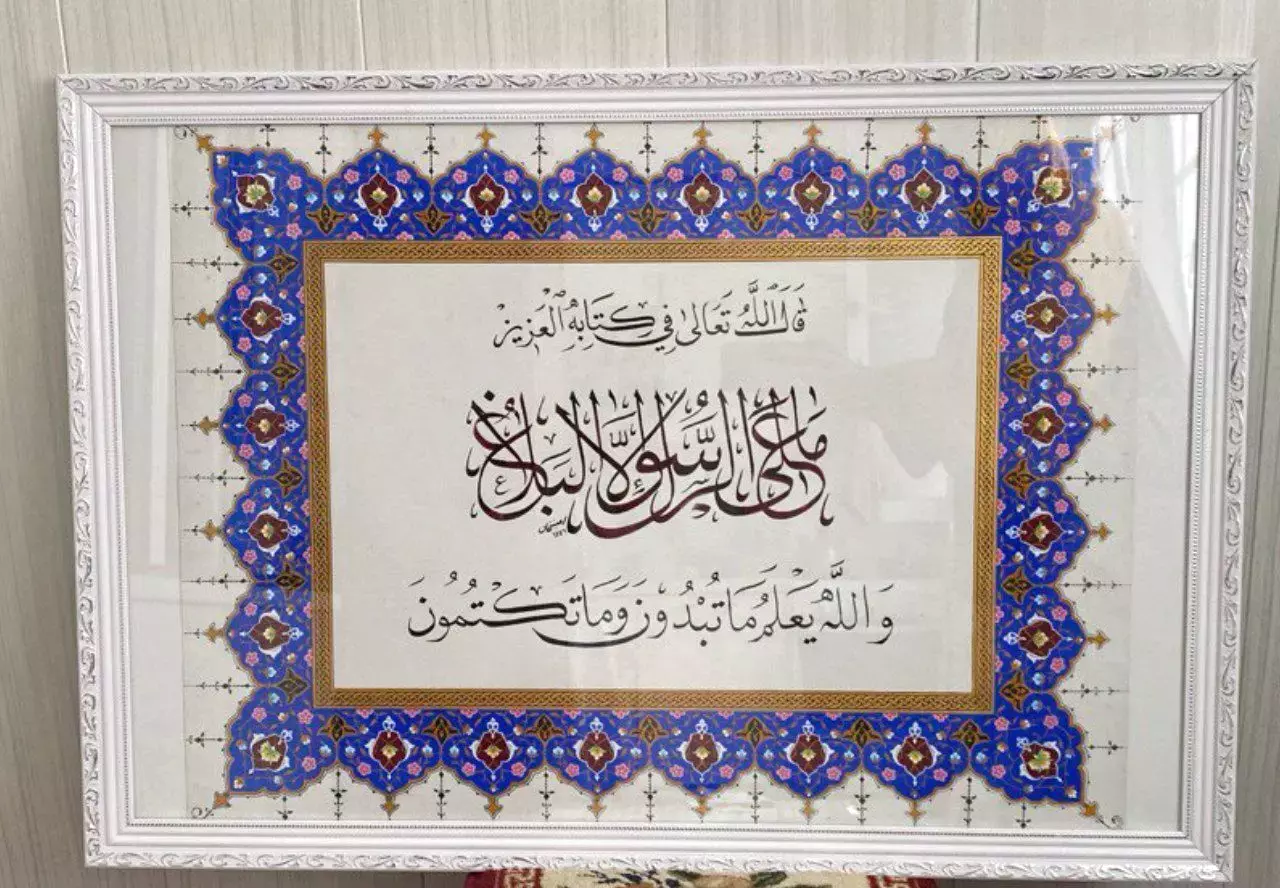 قَالَ اللَّهُ تَعَالَىٰ فِي كِتَابِهِ الْعَزِيزِ
مَا عَلَى الرَّسُولِ إِلَّا الْبَلَاغُ
وَاللَّهُ يَعْلَمُ مَا تُبْدُونَ وَمَا تَكْتُمُونَ